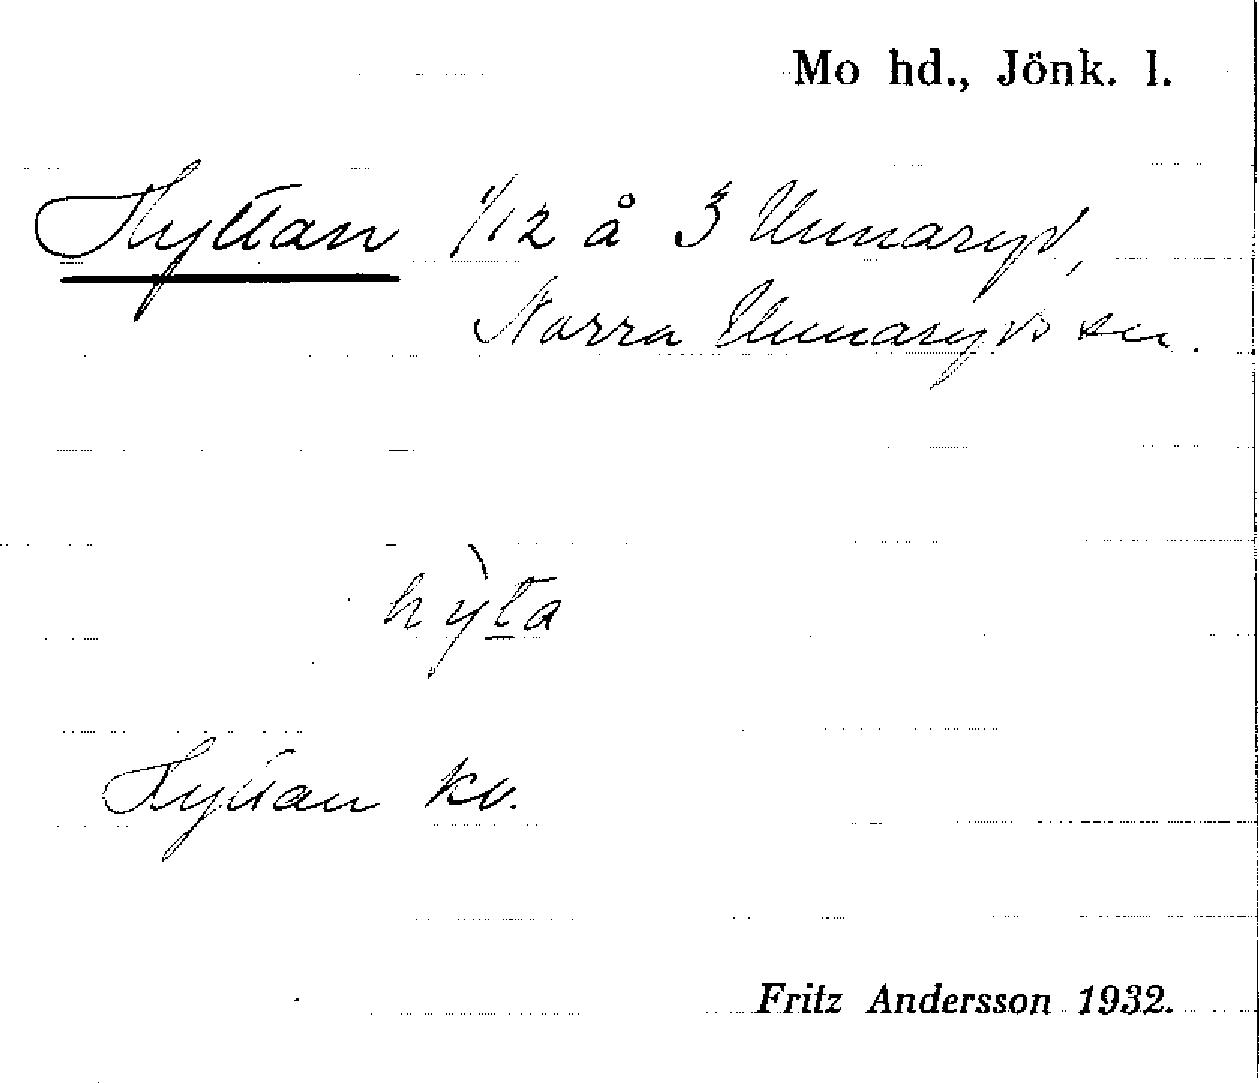 Mo hd., Jönk. l.
Hyttan 1/12 å 3 Unnaryd,
Norra Unnaryds sn.
hỳta
Hyttan kv.
Fritz Andersson 1932.